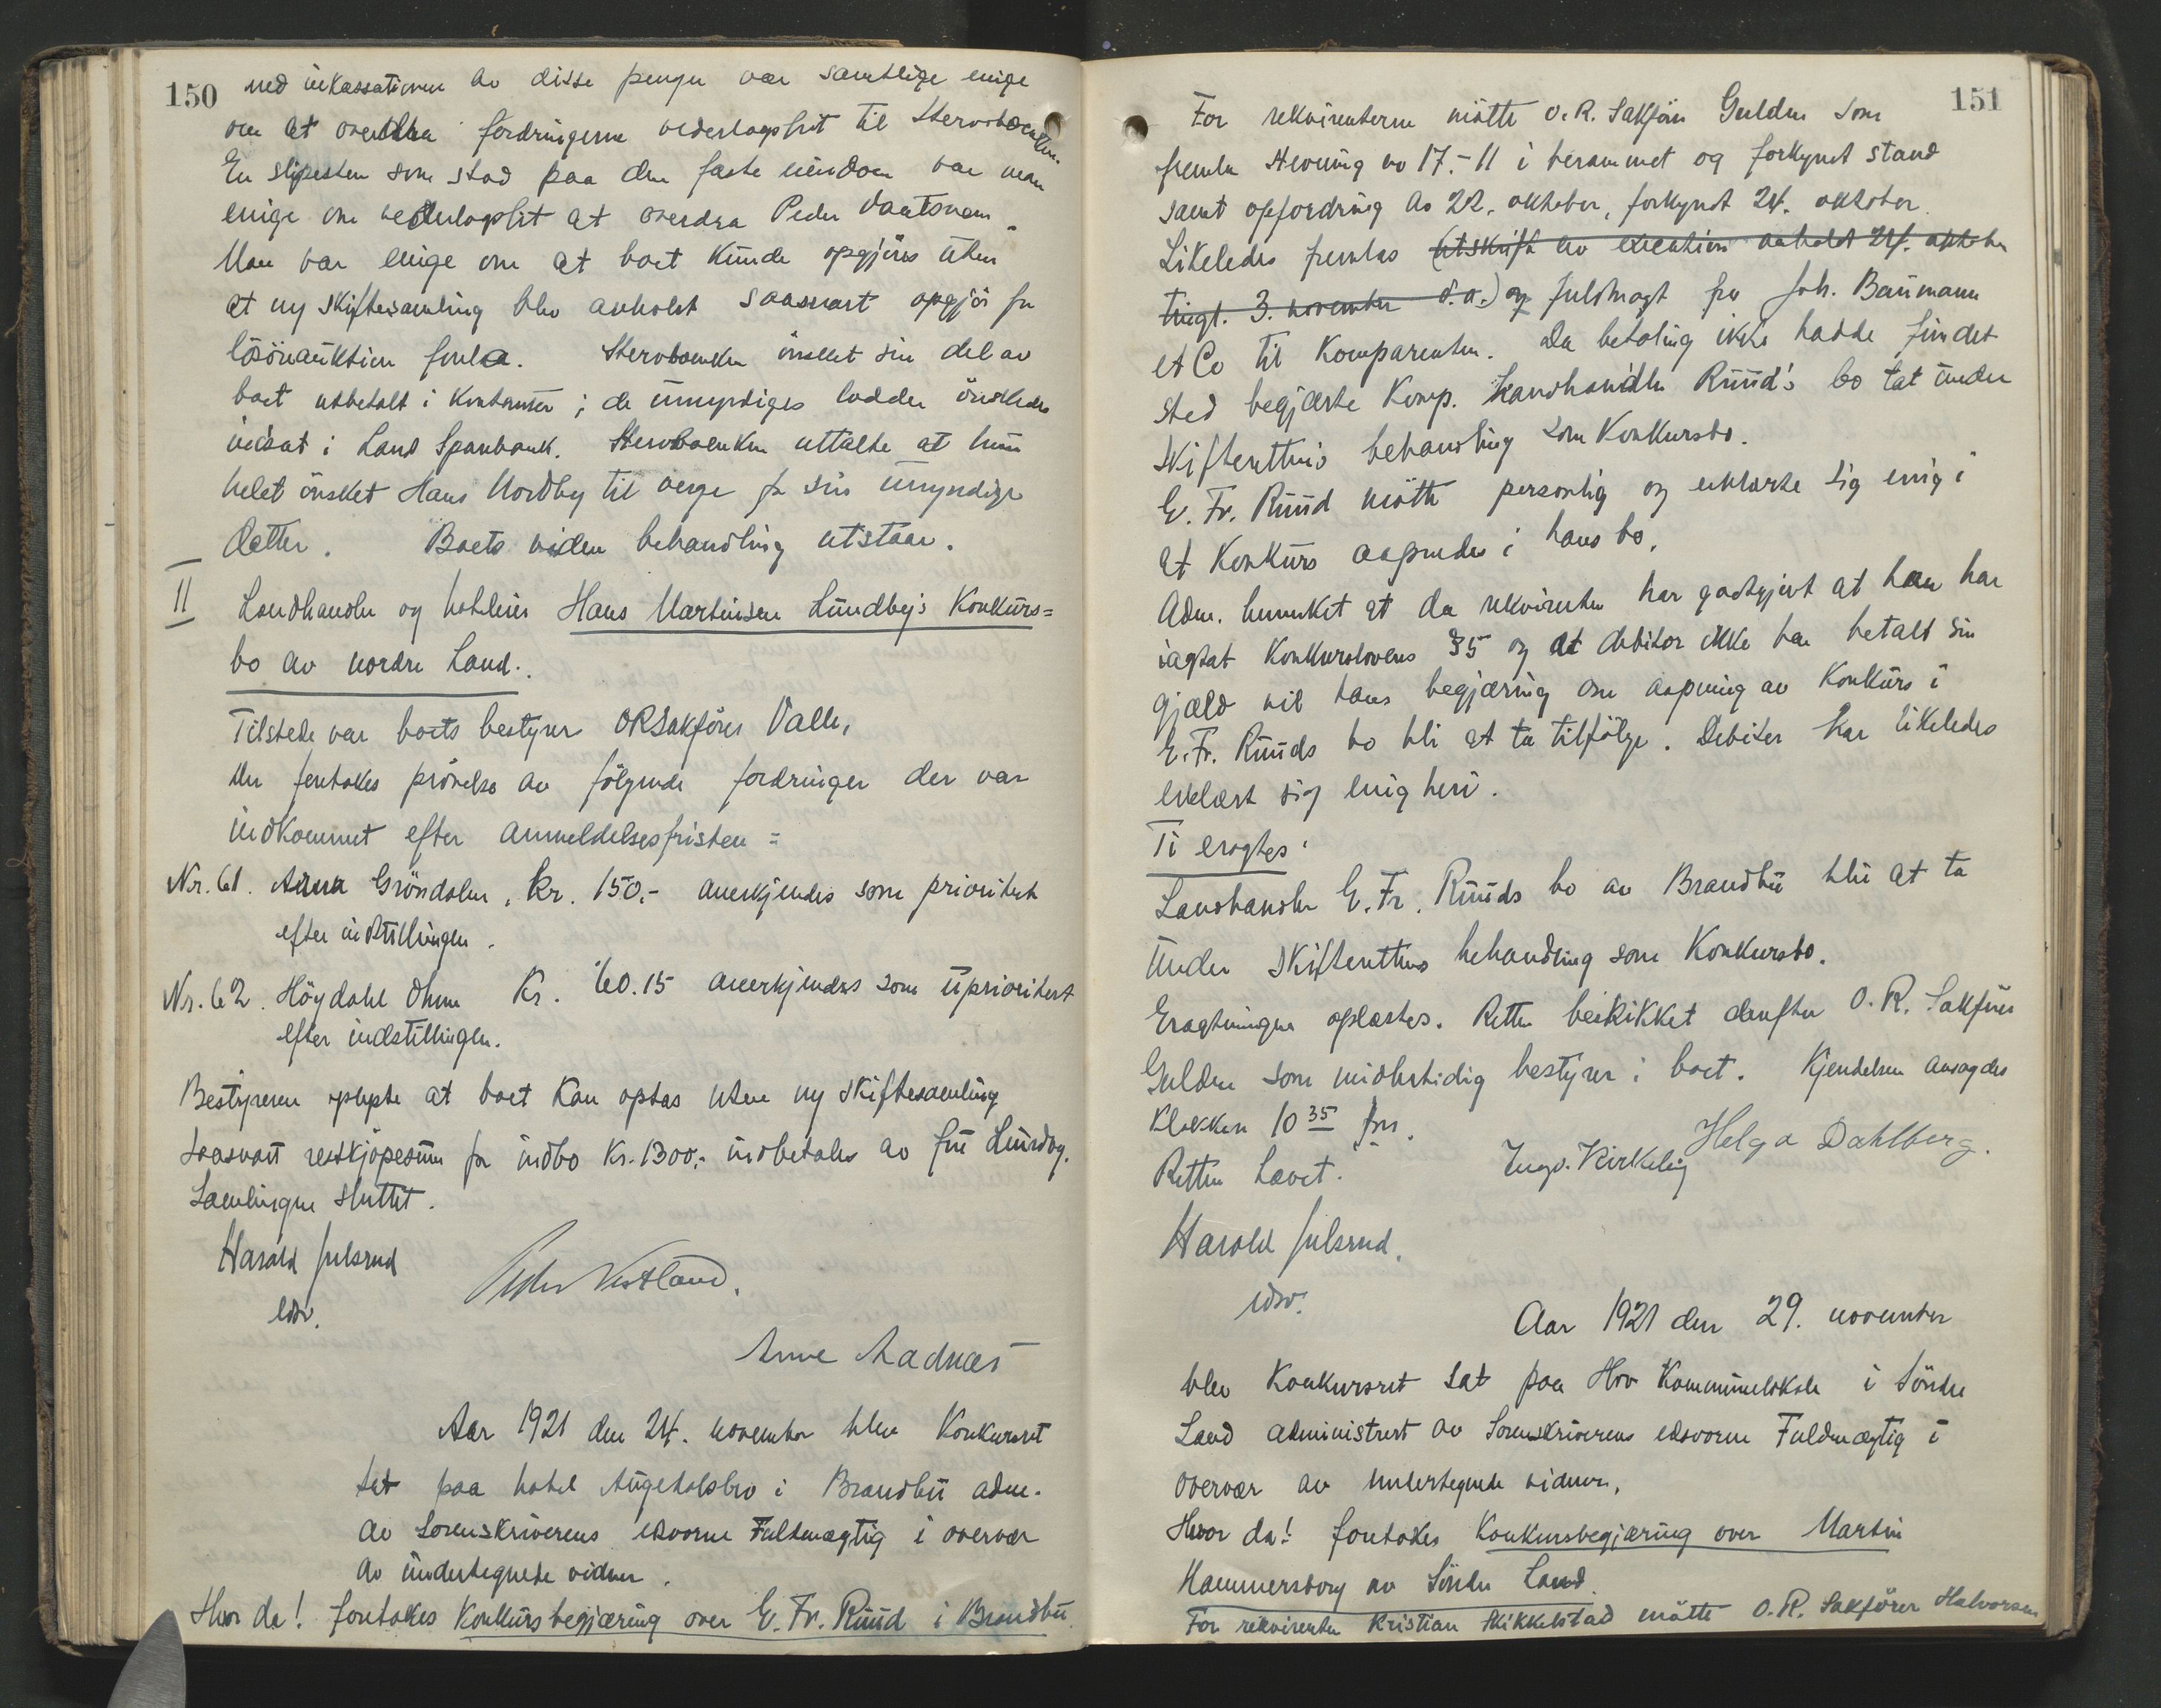 150
med inkassationen av disse penger var samtlige enige
om at overdra fordringerne vederlagsfrit til Stervboenken.
En slipesten som stod paa den faste eiendom var man
enige om vederlagsfrit at overdra Peder
Man var enige om at boet kunde opgjöres uten
at ny skiftesamling blev avholdt saasnart opgjör for
lösöreauktion forela. Stervboenken önsket sin del av
boet utbetalt i kontanter; de umyndiges lodder önskedes
indsat i Land Sparebank. Stervboenken uttalte at hun
helst önsket Hans Nordby til verge for sin umyndige
datter. Boets videre behandling utstaar.
II
Landhandler og hotelleier Hans Martinsen Lundby's Konkurs=
bo av nordre Land.
Tilstede var boets bestyrer ORSakförer Valle,
Der foretokes prövelse av fölgende fordringer der var
indkommet efter anmeldelsesfristen =
Nr. 61. Anna Gröndalen, Kr. 150,- anerkjendes som prioritert
efter indstillingen.
Nr. 62. Höydahl Ohme Kr. 60.15 anerkjendes som uprioritert
efter indstillingen.
Bestyreren oplyste at boet kan optas uten ny skiftesamling
saasnart restkjöpesum for indbo Kr. 1300,- indbetales av fru Lundby.
Samlingen sluttet.
Harald Julsrud
edsv.
Peder Vestland.
Anne Aadnæs
Aar 1921 den 24. november blev Konkursret
sat paa hotel Augedalsbro i Brandbu adm.
av Sorenskriverens edsvorne Fuldmægtig i overvær
av undertegnede vidner.
Hvor da! foretokes Konkursbegjæring over E. Fr. Ruud i Brandbu
151
For rekvirenterne mötte O.R. Sakförer Gulden som
fremla stevning av 17.-11 i berammet og forkyndt stand
samt opfordring av 22. oktober, forkyndt 24. oktober.
Likeledes fremlas (utskrift av execution avholdt 24. oktober
tingl. 3. november d.a.) og fuldmagt fra Joh. Baumann
et Co til Komparenten. Da betaling ikke hadde fundet
sted begjærte Komp. Landhandler Ruud's bo tat under
skifterettens behandling som Konkursbo.
E. Fr. Ruud mötte personlig og erklærte sig enig i
at Konkurs aapnedes i hans bo.
Adm. bemerket at da rekvirenten har godtgjort at han har
iagtat Konkurslovens §5 og at debitor ikke har betalt sin
gjæld vil hans begjæring om aapning av Konkurs i
E. Fr. Ruuds bo bli at ta tilfölge. Debitor har likeledes
erklært sig enig heri.
Ti eragtes:
Landhandler E. Fr. Ruuds bo av Brandbu blir at ta
under skifterettens behandling som Konkursbo.
Eragtningen oplæstes. Retten beskikket derefter O.R. Sakförer
Gulden som midlertidig bestyrer i boet. Kjendelsen avsagdes
klokken 10 35 fm.
Retten hævet.
Ingv. Kirkelig
Helga Dahlberg.
Harald Julsrud.
edsv.
Aar 1921 den 29. november
blev Konkursret sat paa Hov Kommunelokale i Söndre
Land administrert av Sorenskriverens edsvorne Fuldmægtig i
overvær av undertegnede vidner.
Hvor da! foretokes Konkursbegjæring over Martin
Hammersborg av Söndre Land.
For rekvirenten Kristian Skikkelstad mötte O.R. Sakförer Halvorsen